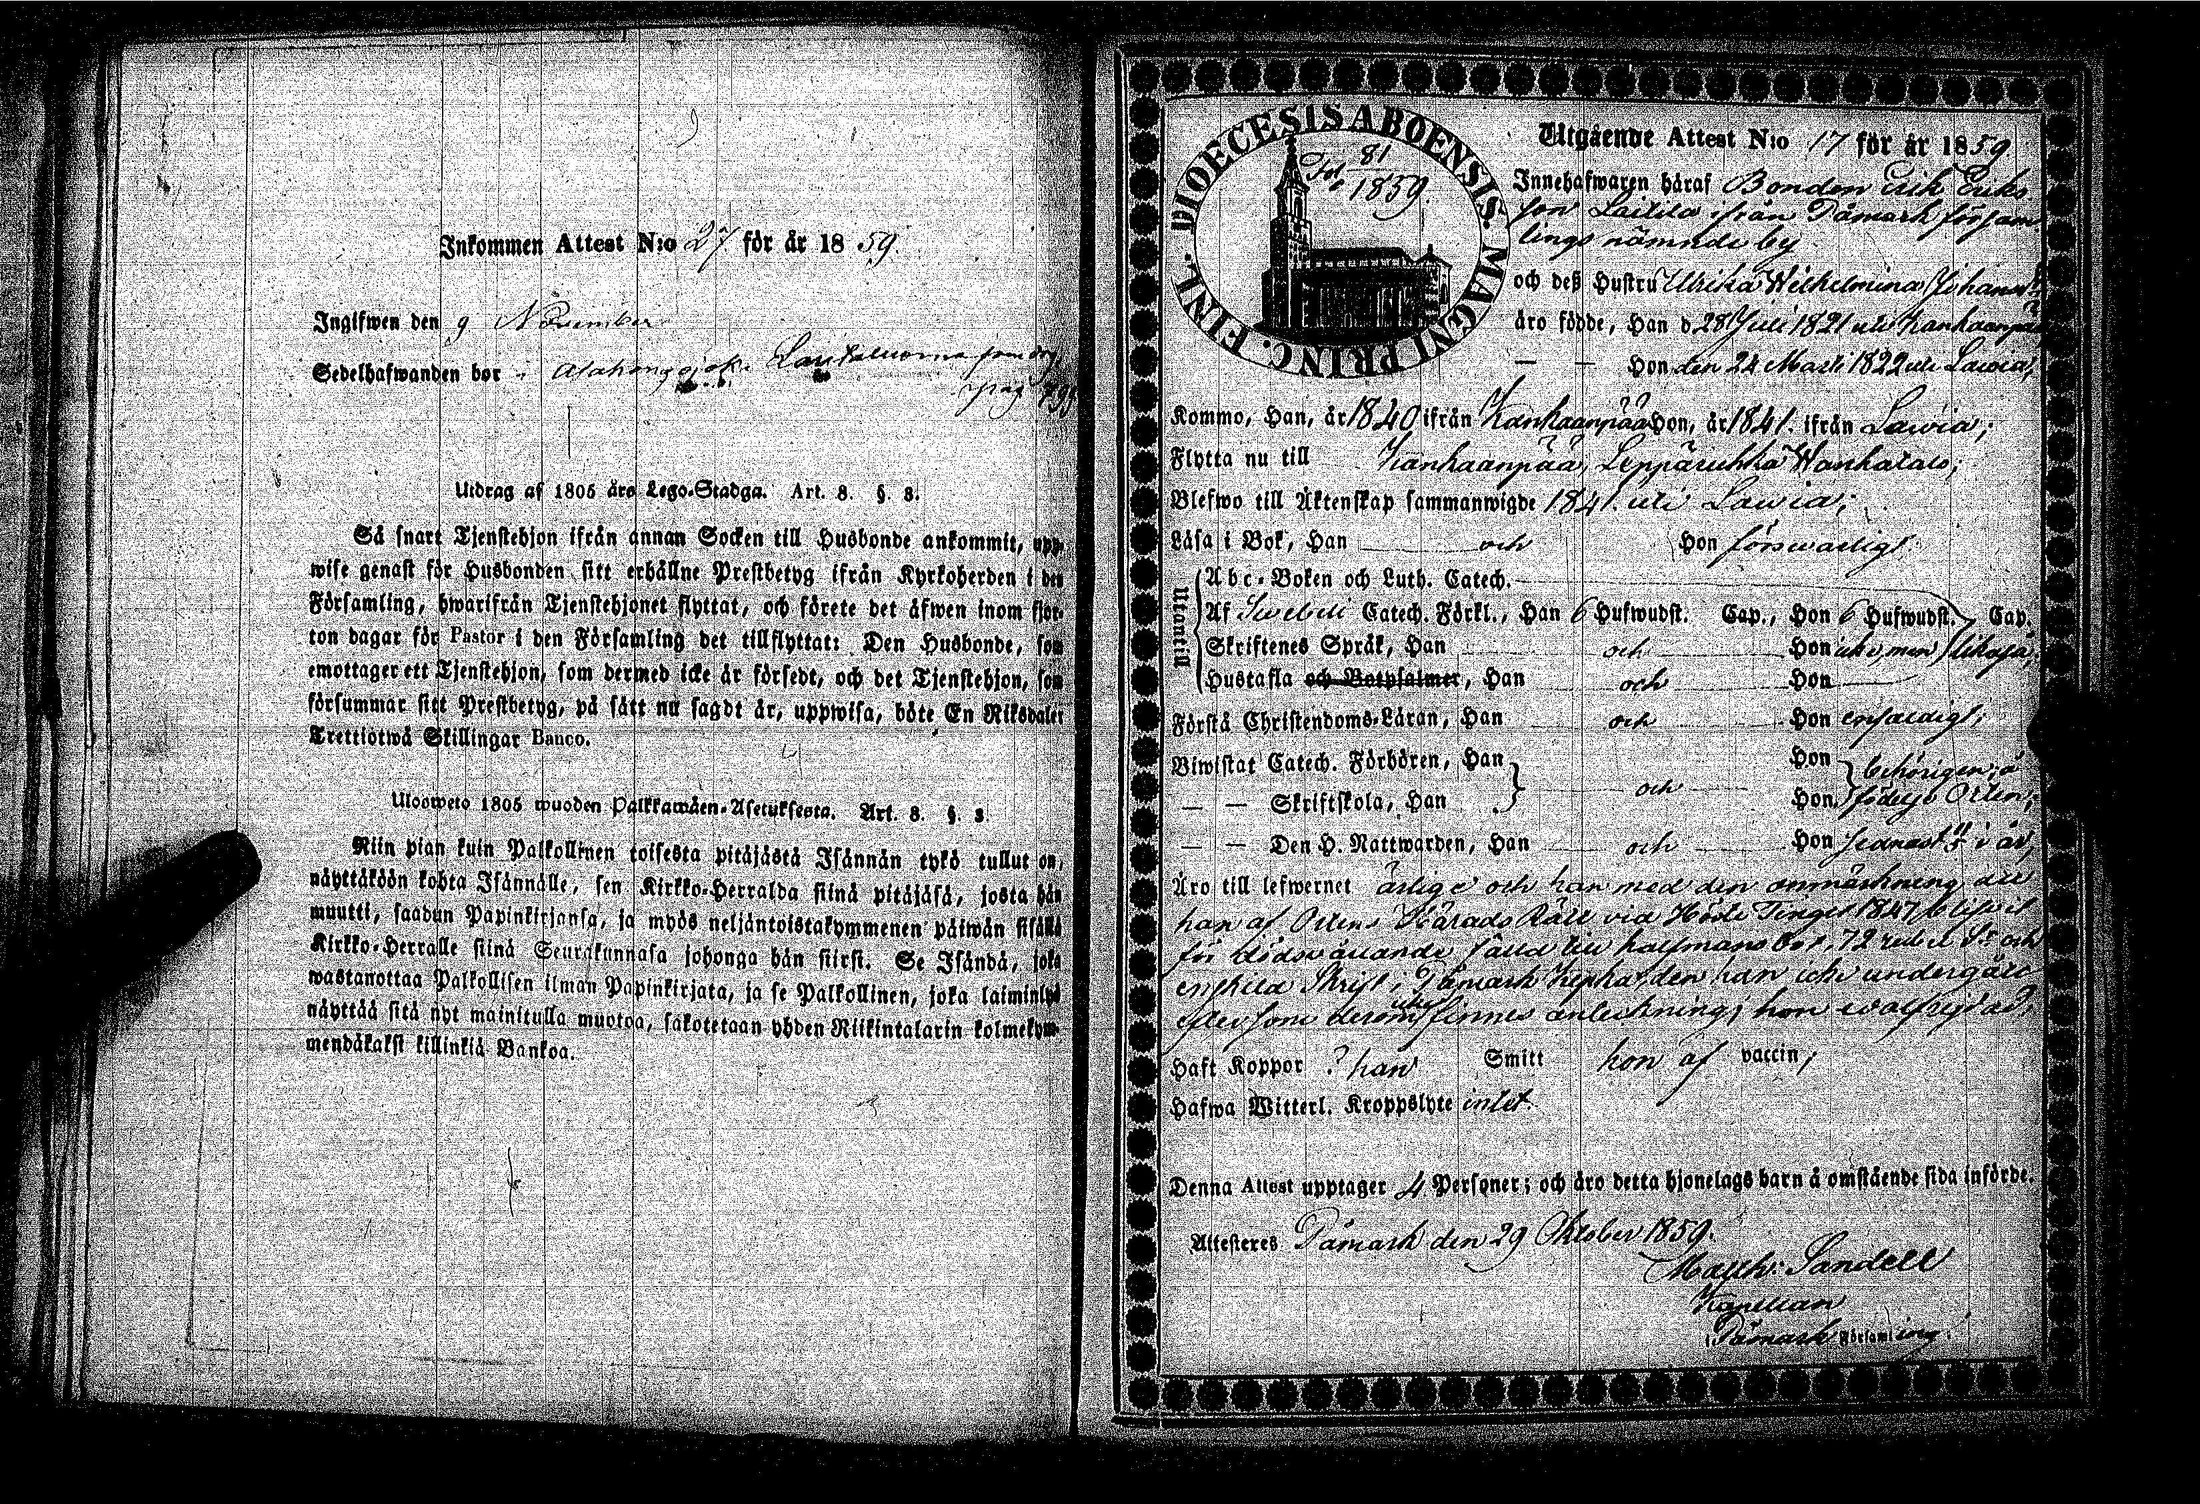 Inkommen Attest N:o 27 för år 1859.
Ingifwen den 9 November
Sedelhafwanden bor i
pag 799
Utdrag af 1805 års Lego-Stadga. Art. 8. §. 8.
Så snart Tjenstehjon ifrån annan Socken till Husbonde ankommit, upp-
wise genast för Husbonden sitt erhållne Prestbetyg ifrån Kyrkoherden i den
Församling, hwarifrån Tjenstehjonet flyttat, och förete det äfwen inom fjor-
ton dagar för Pastor i den Församling det tillflyttat: Den Husbonde, som
emottager ett Tjenstehjon, som dermed icke är försedt, och det Tjenstehjon, som
försummar sitt Prestbetyg, på sätt nu sagdt är, uppwisa, böte En Riksdaler
Trettiotwå Skillingar Banco.
Ulosweto 1805 wuoden Palkkawäen-Asetuksesta. Art. 8. §. 8.
Niin pian kuin Palkollinen toisesta pitäjästä Isännän tykö tullut on,
näyttäköön kohta Isännälle, sen Kirkko-Herralda siinä pitäjäsä, josta hän
muutti, saadun Papinkirjansa, ja myös neljäntoistakymmenen päiwän sisällä
Kirkko-Herralle siinä Seurakunnasa johonga hän siirsi. Se Isändä, joka
wastanottaa Palkollisen ilman Papinkirjata, ja se Palkollinen, joka laiminlyö
näyttää sitä nyt mainitulla muotoa, sakotetaan yhden Riikintalarin kolmekym-
mendäkaksi killinkiä Bankoa.
DIOECESIS ABOENSIS. MAGNI PRINC. FINL.
Fol. 81
1859.
Utgående Attest N:o 17 för år 1859.
Innehafwaren häraf Bonden Erik Eriks
son Laitila ifrån Påmark försam
lings nämnde by
och deß Hustru Ulrika Wilhelmina Johansd:r
äro födde, Han d. 28 Juli 1821 uti Kankaanpää
— — Hon den 24 Marti 1822 uti Lawia;
Kommo, Han, år 1840 ifrån Kankaanpää Hon, år 1841. ifrån Lawia;
Flytta nu till Kankaanpää, Leppäruhka Wanhatalo;
Blefwo till Äktenskap sammanwigde 1841. uti Lawia;
Läsa i Bok, Han och Hon förswarligt
Utantill
Abc-Boken och Luth. Catech.
Af Swebeli Catech. Förkl., Han 6 Hufwudst. Cap., Hon 6 Hufwudst. Cap.
Skriftenes Språk, Han och Hon icke, men likaså;
Hustafla och Botpsalmer, Han och Hon
Förstå Christendoms-Läran, Han och Hon enfaldigt;
Biwistat Catech. Förhören, Han och Hon behörigen; å
— — Skriftskola, Han Hon födelse Orten;
— — Den H. Nattwarden, Han och Hon sednast i år;
Äro till lefwernet ärlige och han med den anmärkning att
han af Ortens Härads Rätt vid Höste Tinget 1847 blifwit
för dödswållande fälld till halfmans bot, 72 rubel S:r och
enskild Skrift i Påmark Kyrka, den han icke undergått
efter som derom icke finnes anteckning; hon wälfrejdad;
Haft Koppor ? han Smitt hon af vaccin;
Hafwa Witterl. Kroppslyte intet.
Denna Attest upptager 4 Personer; och äro detta hjonelags barn å omstående sida införde.
Attesteres Påmark den 29 Oktober 1859.
Matth: Sandell
Kapellan
i Påmark Församling.